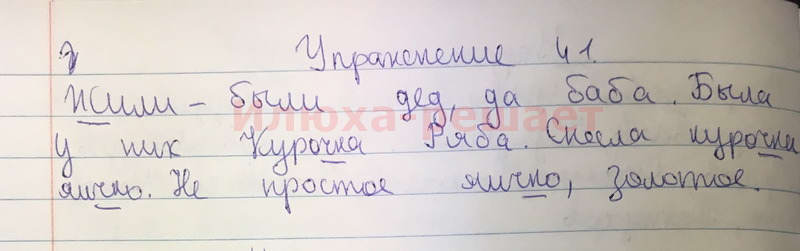 Упражнение 41.
Жили - были дед, да баба. Была
у них Курочка Ряба. Снесла курочка
яичко. Не простое яичко, золотое.
илюха-решает